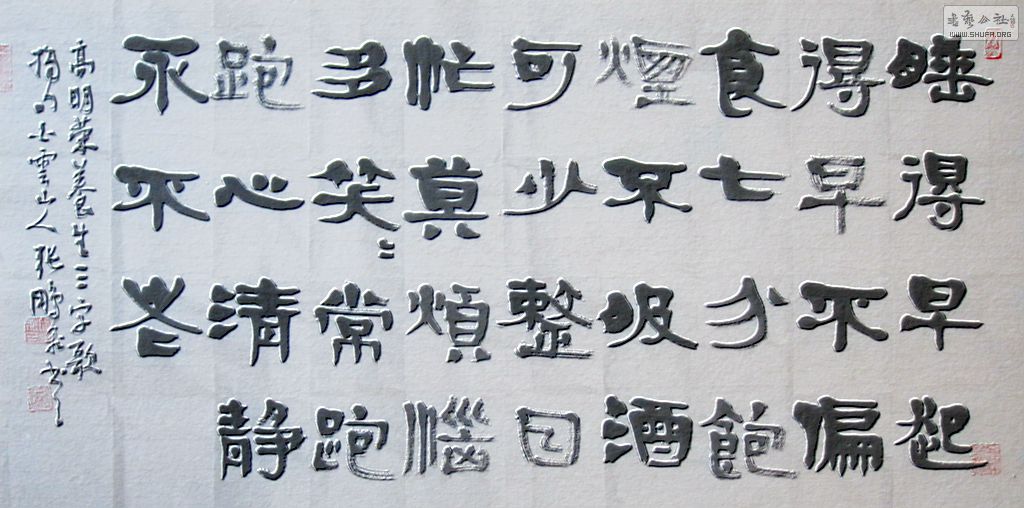 睡得早起
得早不偏
食七分飽
煙不吸酒
可少整日
忙莫煩惱
多笑〻常跑
跑心清静
永不老
高明荣養生三字歌
雲山人张鵬
書藝公社
WWW.SHUFA.ORG